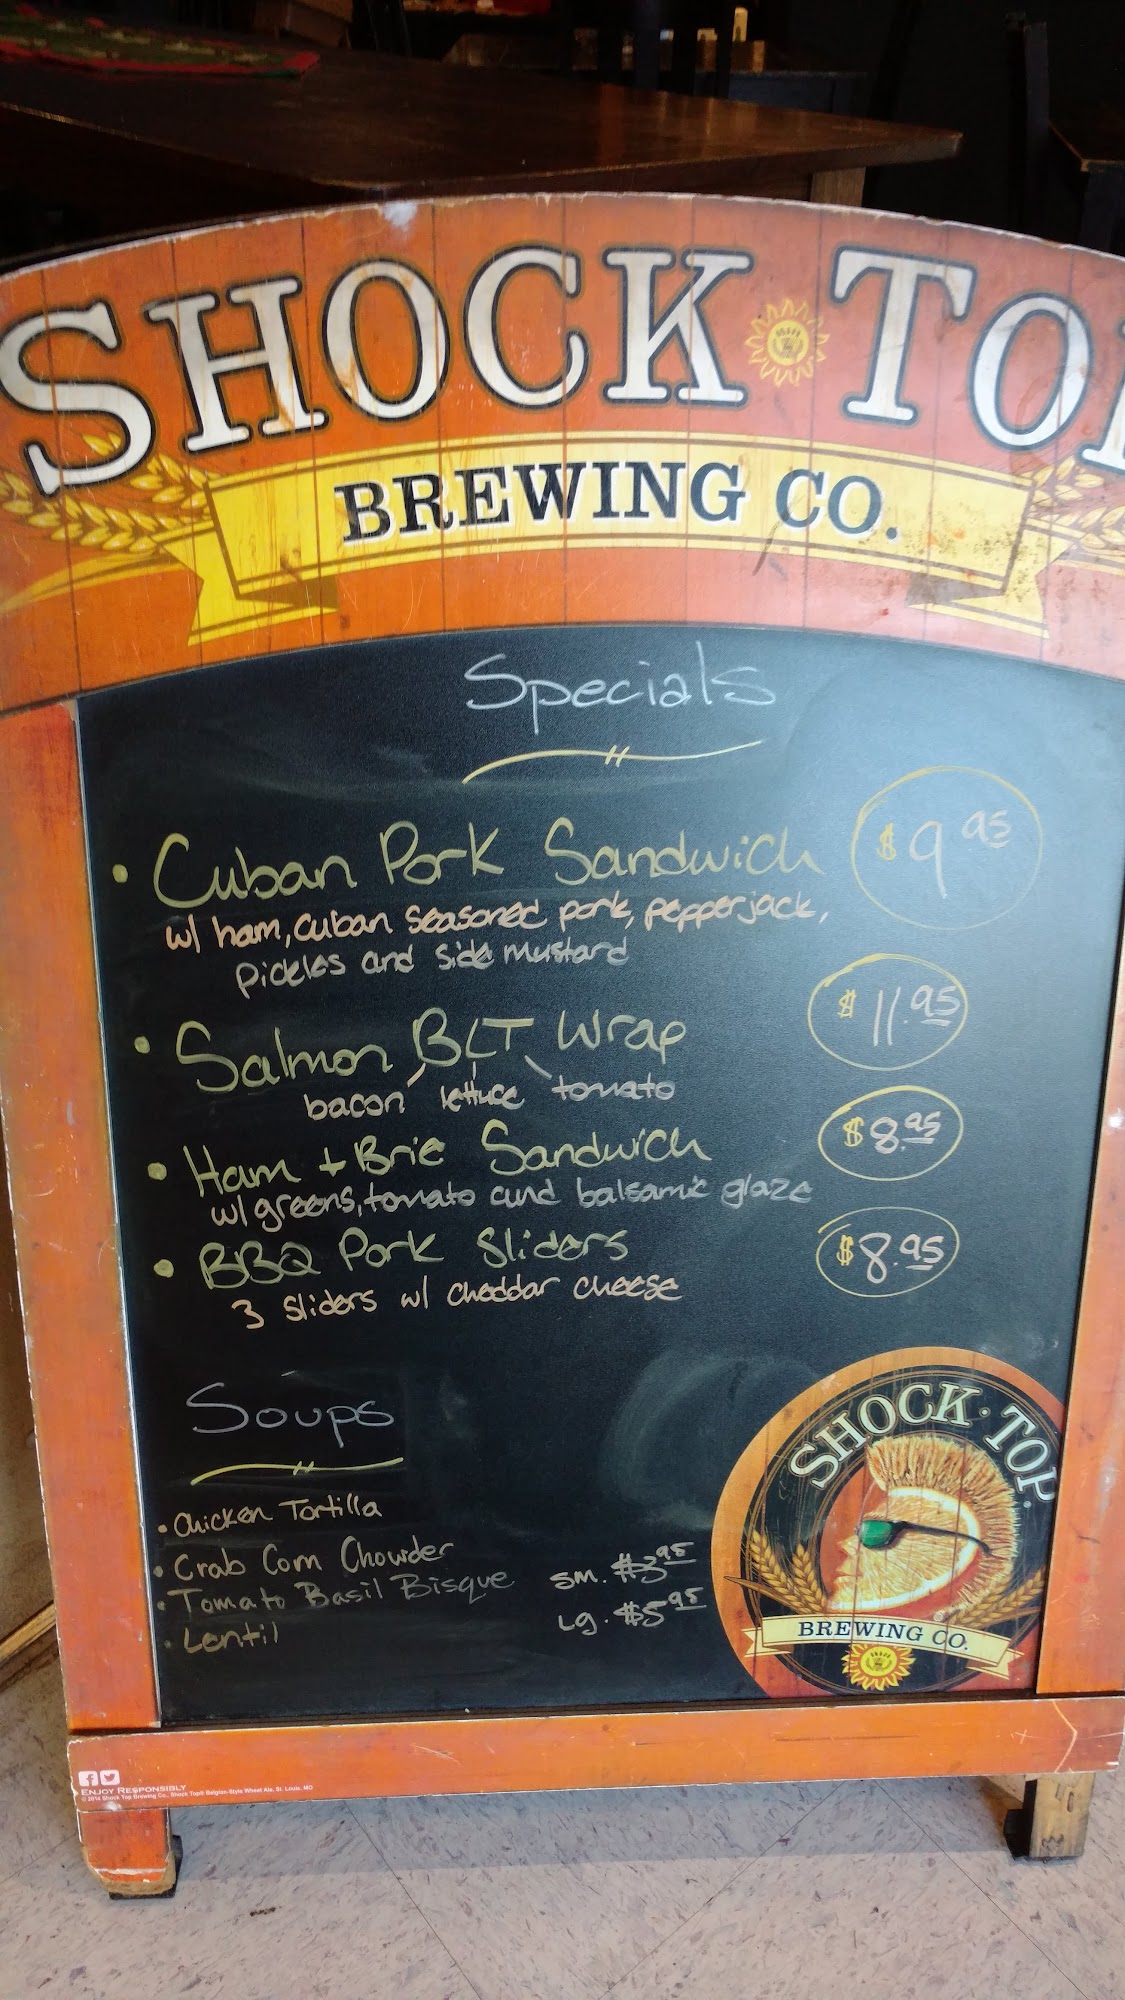 SHOCK TOP
BREWING CO.
Specials
• Cuban Pork Sandwich $9.95
w/ ham, cuban seasoned pork, pepperjack,
pickles and side mustard
• Salmon BLT Wrap $11.95
bacon lettuce tomato
• Ham + Brie Sandwich $8.95
w/ greens, tomato and balsamic glaze
• BBQ Pork Sliders $8.95
3 sliders w/ cheddar cheese
Soups
• Chicken Tortilla
• Crab Corn Chowder
• Tomato Basil Bisque
• Lentil
sm. $3.95
lg. $5.95
SHOCK • TOP.
BREWING CO.
ENJOY RESPONSIBLY
© 2014 Shock Top Brewing Co., Shock Top® Belgian-Style Wheat Ale, St. Louis, MO